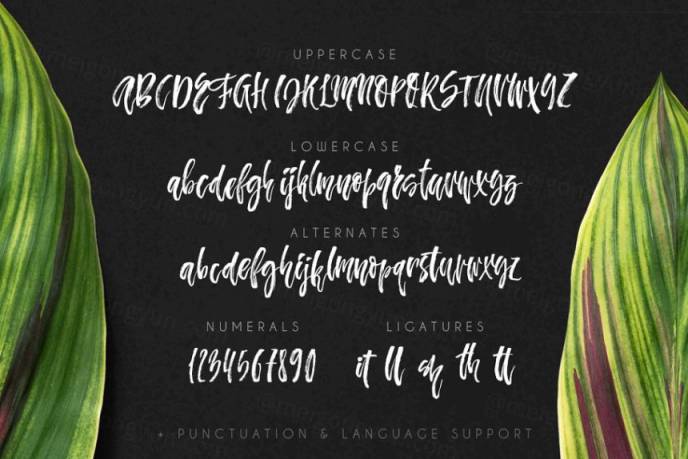 UPPERCASE
ABCDEFGHIJKLMNOPQRSTUVWXYZ
LOWERCASE
abcdefghijklmnopqrstuvwxyz
ALTERNATES
abcdefghijklmnopqrstuvwxyz
NUMERALS LIGATURES
1234567890 it ll th tt
+ PUNCTUATION & LANGUAGE SUPPORT